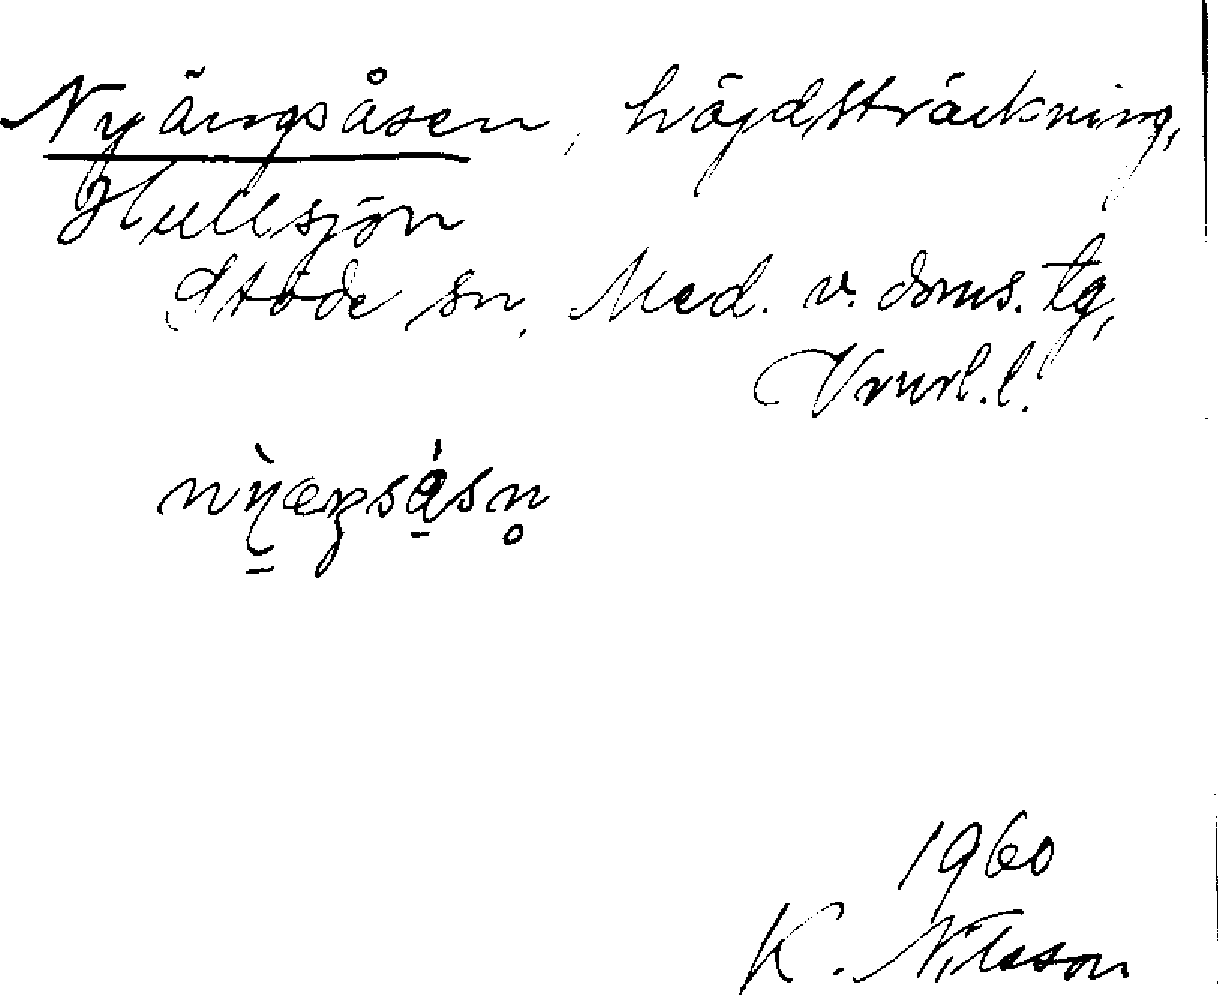 Nyängsåsen, höjdsträckning,
Hullsjön
Stöde sn, Med. v. doms. tg,
Vnrl. l.
nỳ̱æŋsá̱sn̥
1960
K. Nilsson